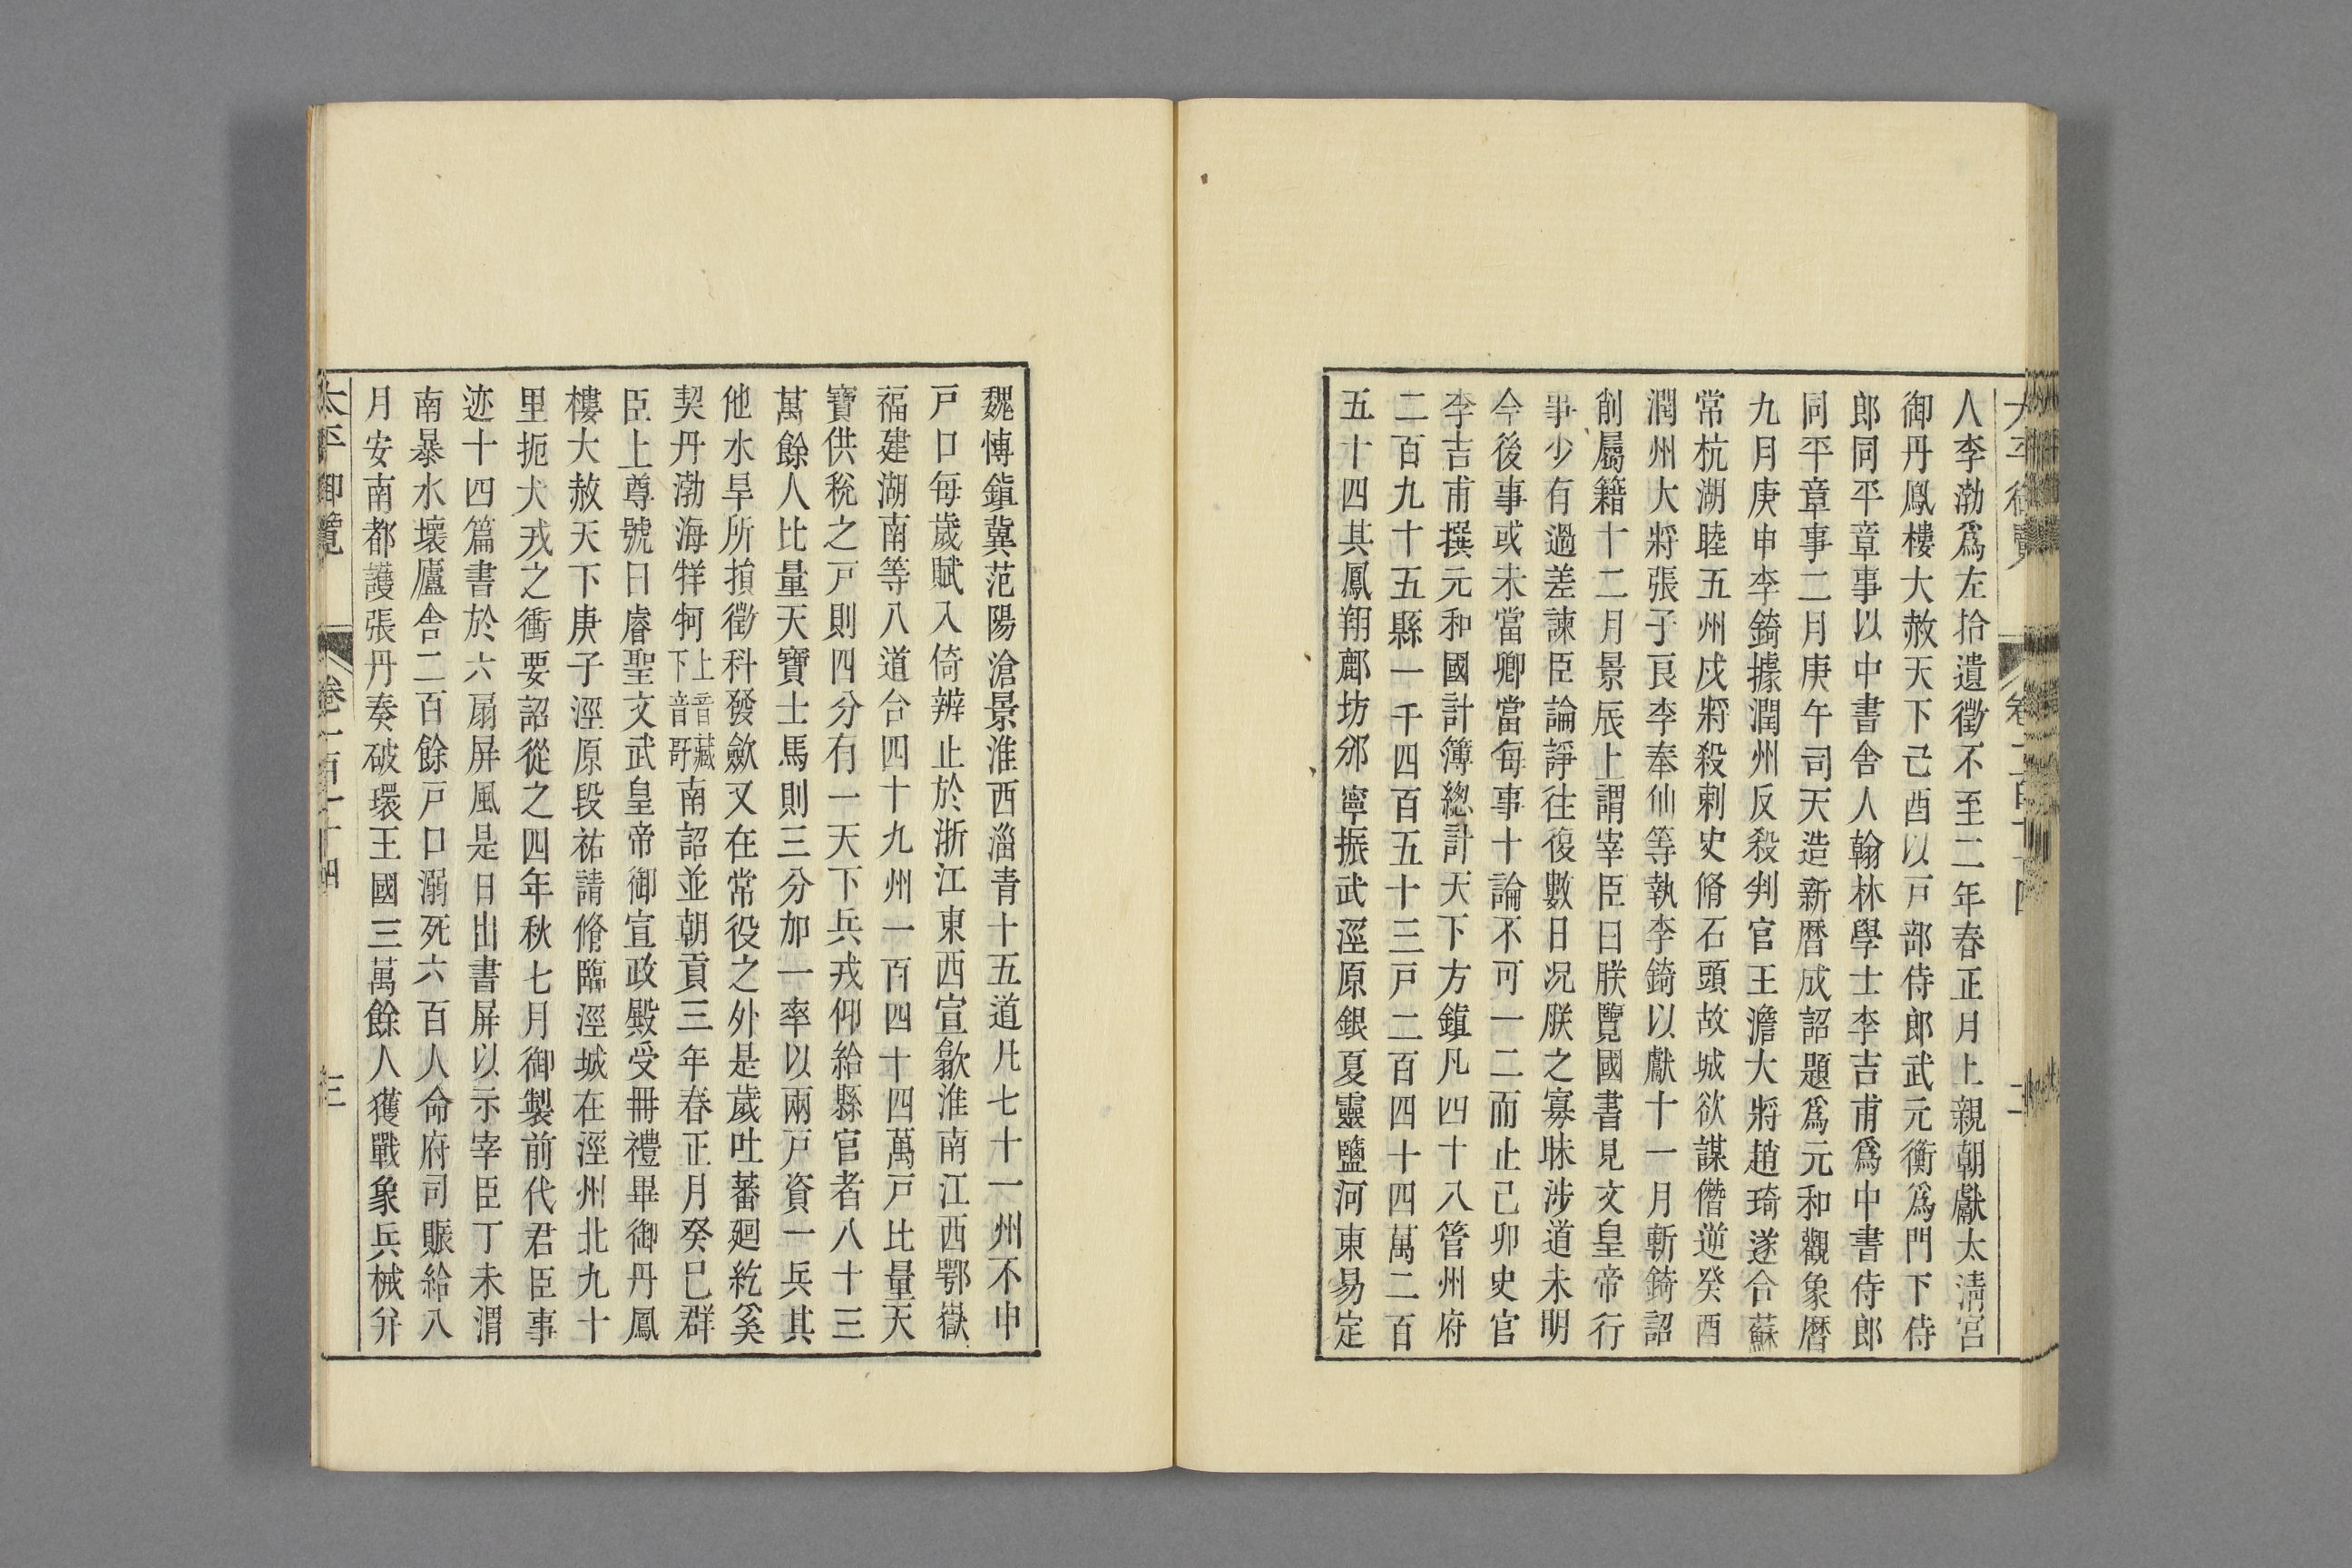 人李渤爲左拾遺徵不至二年春正月上親朝獻太淸宮
御丹鳳樓大赦天下己酉以戸部侍郎武元衡爲門下侍
郎同平章事以中書舍人翰林學士李吉甫爲中書侍郎
同平章事二月庚午司天造新曆成詔題爲元和觀象曆
九月庚申李錡據潤州反殺判官王澹大將趙琦遂合蘇
常杭湖睦五州戍將殺刺史脩石頭故城欲謀僭逆癸酉
潤州大將張子良李奉仙等執李錡以獻十一月斬錡詔
削屬籍十二月景辰上謂宰臣曰朕覽國書見文皇帝行
事少有過差諫臣論諍往復數日况朕之寡昧涉道未明
今後事或未當卿當每事十論不可一二而止己卯史官
李吉甫撰元和國計簿總計天下方鎮凡四十八管州府
二百九十五縣一千四百五十三戸二百四十四萬二百
五十四其鳳翔鄜坊邠寧振武涇原銀夏靈鹽河東易定
魏愽鎮冀范陽滄景淮西淄青十五道凡七十一州不申
戸口每歲賦入倚辦止於浙江東西宣歙淮南江西鄂嶽
福建湖南等八道合四十九州一百四十四萬戸比量天
寶供稅之戸則四分有一天下兵戎仰給縣官者八十三
萬餘人比量天寶士馬則三分加一率以兩戸資一兵其
他水旱所損徵科發斂又在常役之外是歲吐蕃廻紇奚
契丹渤海牂牁上音藏下音哥南詔並朝貢三年春正月癸巳群
臣上尊號曰睿聖文武皇帝御宣政殿受冊禮畢御丹鳳
樓大赦天下庚子涇原段祐請脩臨涇城在涇州北九十
里扼犬戎之衝要詔從之四年秋七月御製前代君臣事
迹十四篇書於六扇屏風是日出書屏以示宰臣丁未渭
南暴水壞廬舍二百餘戸口溺死六百人命府司賑給八
月安南都護張丹奏破環王國三萬餘人獲戰象兵械幷
太平御覽 卷一百一十四 三